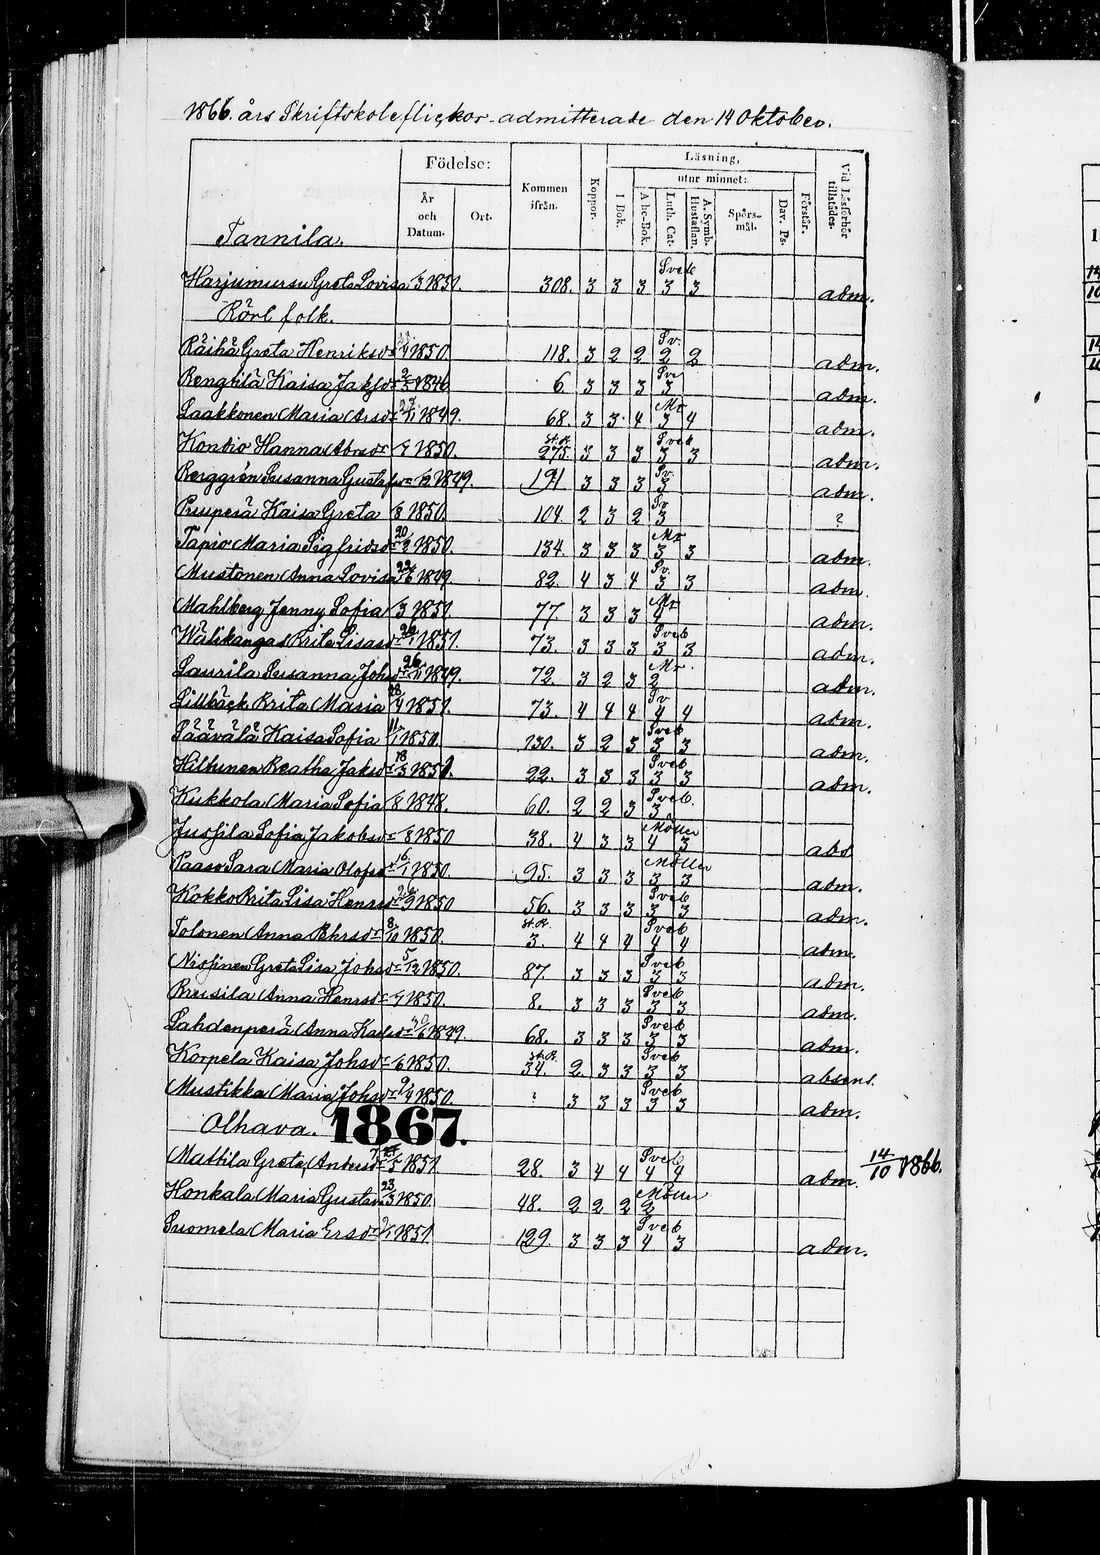 1866. års Skriftskoleflickor admitterade den 14 Oktober.
Födelse: År och Datum. Ort. Kommen ifrån. Koppor. Läsning, I Bok. utur minnet: Abc-Bok. Luth. Cat. A. Symb. Hustaflan. Spörs-mål. Dav. Ps. Förstår. Vid Läsförhör tillstädes.
Tannila.
Harjumursu Greta Lovisa /3 1851. 308. 3 3 3 Sveb 3 3 adm.
Rörl folk.
Räihä Greta Henriksdr /4 1850. 118. 3 2 2 Sv. 2 2 adm.
Rengtilä Kaisa Jaksdr 1846 6. 3 3 3 Sve 3 adm.
Laakkonen Maria Arsdr /11 1849. 68. 3 3. 4 Mr 3 4 adm.
Kontio Hanna Abrsdr 1850. St. R. 275. 3 3 3 Sveb 3 3 adm.
Berggrén Susanna Gustafsdr /12 1849. 191 3 3 3 Sv. 3 adm.
Puuperä Kaisa Greta /8 1850. 104 2 3 2 Sv 3 ?
Tapio Maria Sigfridsdr 20/2 1850. 134. 3 3 3 Mr 3 3 adm.
Mustonen Anna Lovisa 22/6 1849. 82. 4 3 4 Sv. 3 3 adm.
Mahlberg Jenny Sofia /3 1851 77. 3 3 3 Mr 4 adm.
Wälikangas Brita Lisasdr 29/1 1851. 73. 3 3 3 Sveb 3 3 adm.
Laurila Susanna Johsdr 26/11 1849. 72. 3 2 3 Mr. 2 adm.
Lillbäck Brita Maria 28/4 1851. 73. 4 4 4 Sv 4 4 adm.
Säävälä Kaisa Sofia 11/1 1850. 130. 3 2 3 Sveb 3 3 adm.
Hiltunen Beatha Jaksdr 18/3 1851. 22. 3 3 3 Sveb 3 3 adm.
Kukkola Maria Sofia /8 1848. 60. 2 2 3 Sveb. 3
Jussila Sofia Jakobsdr /8 1850 38. 4 3 3 Möller 4 3 abs
Paaso Sara Maria Olofsdr 16/1 1850. 95. 3 3 3 Möller 3 3 adm.
Kokko Brita Lisa Henrsdr /9 1850 56. 3 3 3 Sveb 3 3 adm.
Tolonen Anna Bkrsdr 8/10 1850. St. R. 3. 4 4 4 Sveb 4 4 adm.
Nissinen Greta Lisa Johsdr 5/12 1850. 87. 3 3 3 Sveb 3 3 adm.
Breisila Anna Henrsdr 1850. 8. 3 3 3 Sveb 3 3 adm.
Lahdenperä Anna Karlsdr /6 1849. 68. 3 3 3 Sveb 3 3 adm.
Korpela Kaisa Johsdr /6 1850. St. R. 34. 2. 3 3 Sveb 3 3 absens.
Mustikka Maria Johsdr /4 1850. ? 3 3 3 Sveb 3 3 adm.
Olhava. 1867.
Mattila Greta Andersdr /5 1851 28. 3 4 4 Sveb. 4 4 adm. 14/10 1866.
Honkala Maria Gustava 23/3 1850. 48. 2 2 2 Möller 2
Suomela Maria Ersdr /1 1851 129. 3 3 3 Sveb 4 3 adm.